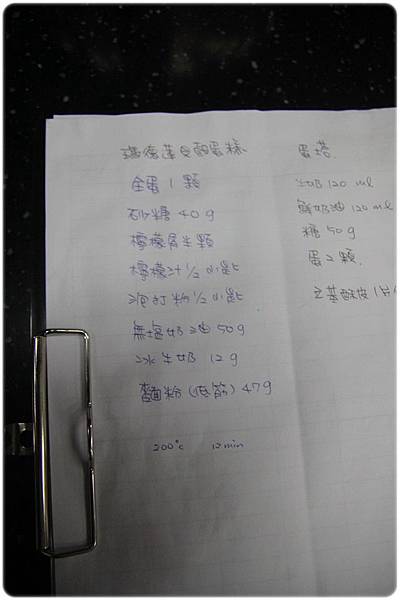 瑪德蓮貝殼蛋糕
全蛋 1 顆
砂糖 40 g
檸檬屑半顆
檸檬汁 1/2 小匙
泡打粉 1/2 小匙
無塩奶油 50g
冰牛奶 12 g
麵粉 (低筋) 47g
200°c 12 min
蛋塔
牛奶 120 ml
鮮奶油 120 ml
糖 50 g
蛋 2 顆
酥皮 1